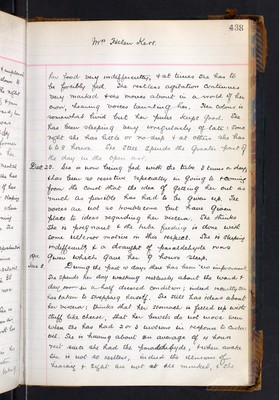 438
Mrs Helen Kerr.
her food very indifferently, & at times she has to
be forcibly fed. The restless agitation continues
very marked & she moves about in a world of her
own, hearing voices taunting her. Her colour is
somewhat livid but her pulse keeps good. She
has been sleeping very irregularly of late: some
night she has little or no sleep & at others she has
6 to 8 hours. She still spends the greater part of
the day in the open air.
Dec 20. She is now being fed with the tube 3 times a day
& has been so resistive especially in going to & coming
from the court that the idea of getting her out as
much as possible has had to be given up. The
voices are not so troublesome but have given
place to ideas regarding her viscera. She thinks
she is pregnant & the tube feeding is done with
some ulterior motive in this respect. She is sleeping
indifferently & a draught of paraldehyde was
given which gave her 9 hours sleep.
Jan 3
During the past 10 days there has been no improvement
She spends her day walking restlessly about the ward & 
day room in a half dressed condition; indeed recently she
has taken to stripping herself. She still has ideas about
her viscera: thinks that her stomach is filled up with
stuff like cheese, that her bowels do not move even
when she has had 2 or 3 motions in response to castor
oil. She is having about an average of 6 hours
rest since she had the paraldehyde, & when awake
she is not so restless, indeed the illusions of
hearing & sight are not at all marked, & she